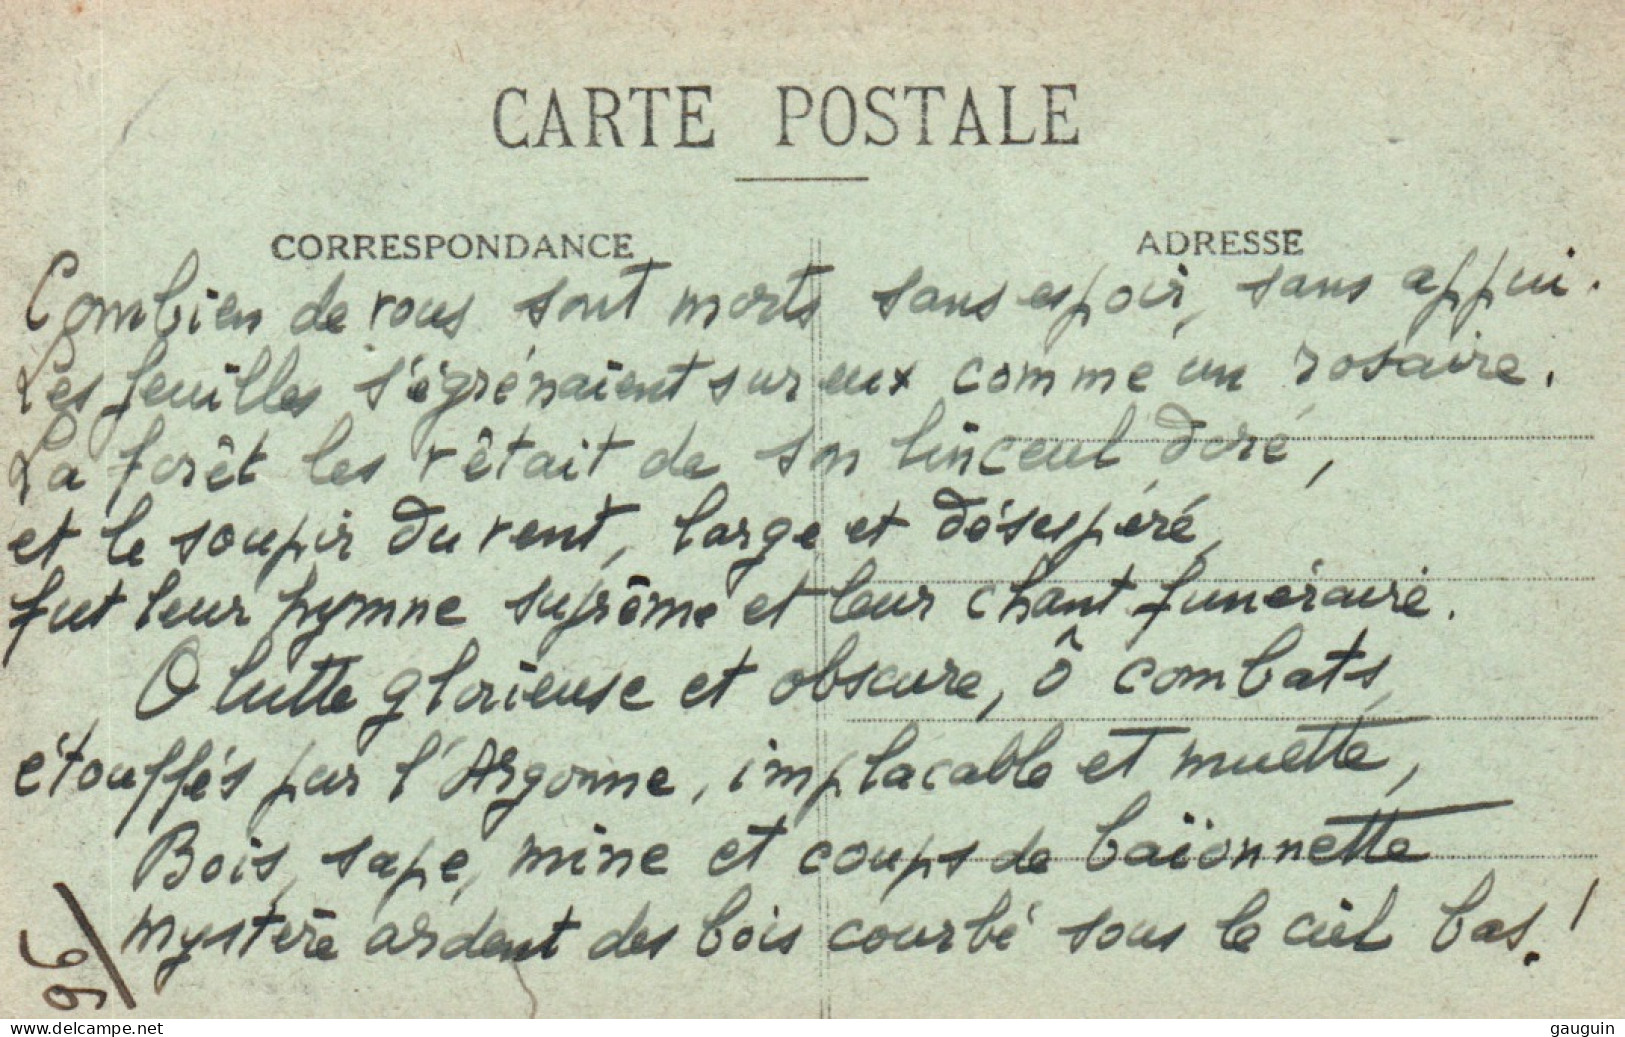 CARTE POSTALE
CORRESPONDANCE
ADRESSE
Combien de vous sont morts sans espoir, sans appui.
Les feuilles s'égrénaient sur eux comme un rosaire.
La forêt les vêtait de son linceul doré,
et le soupir du vent, large et désespéré,
fut leur hymne suprême et leur chant funéraire.
O lutte glorieuse et obscure, ô combats,
étouffés par l'Argonne, implacable et muette,
Bois, sape, mine et coups de baïonnette
mystère ardent des bois courbé sous le ciel bas.!
96/
www.delcampe.net
gauguin